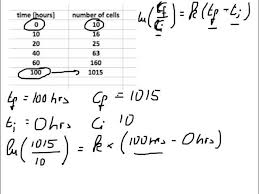 time [hours] number of cells
0 10
10 16
20 25
40 63
60 160
100 1015
ln(Cf/Ci) = k(tf - ti)
tf = 100hrs Cf = 1015
ti = 0hrs Ci 10
ln(1015/10) = k × (100hrs - 0hrs)